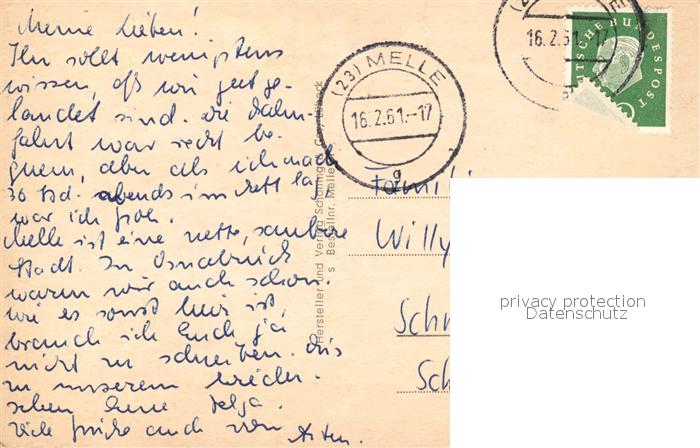 Meine Lieben!
Ihr sollt wenigstens
wissen, daß wir gut ge-
landet sind. Die Bahn-
fahrt war recht be-
quem, aber als ich nach
30 Std. abends im Bett lag,
war ich froh.
Melle ist eine nette, saubere
Stadt. In Osnabrück
waren wir auch schon.
Wie es sonst hier ist,
brauch ich Euch ja
nicht zu schreiben. Bis
zu unserem Wieder-
sehen Eure Helga.
Viele Grüße auch von
Familie
Willy
Sch
Sch
(23) MELLE
16.2.61.-17
g
16.2.61.-17
DEUTSCHE BUNDESPOST
Hersteller und Verlag Schöning & Co., Lübeck
Bestellnr. Melle
privacy protection
Datenschutz